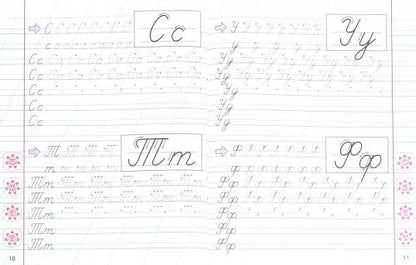 С
Сс
с
Сс
Сс
Сс
Сс
Сс
Т
Тт
т
Тт
Тт
Тт
Тт
Тт
10
У
Уу
у
Уу
Уу
Уу
Уу
Уу
Ф
Фф
ф
Фф
Фф
Фф
Фф
Фф
11